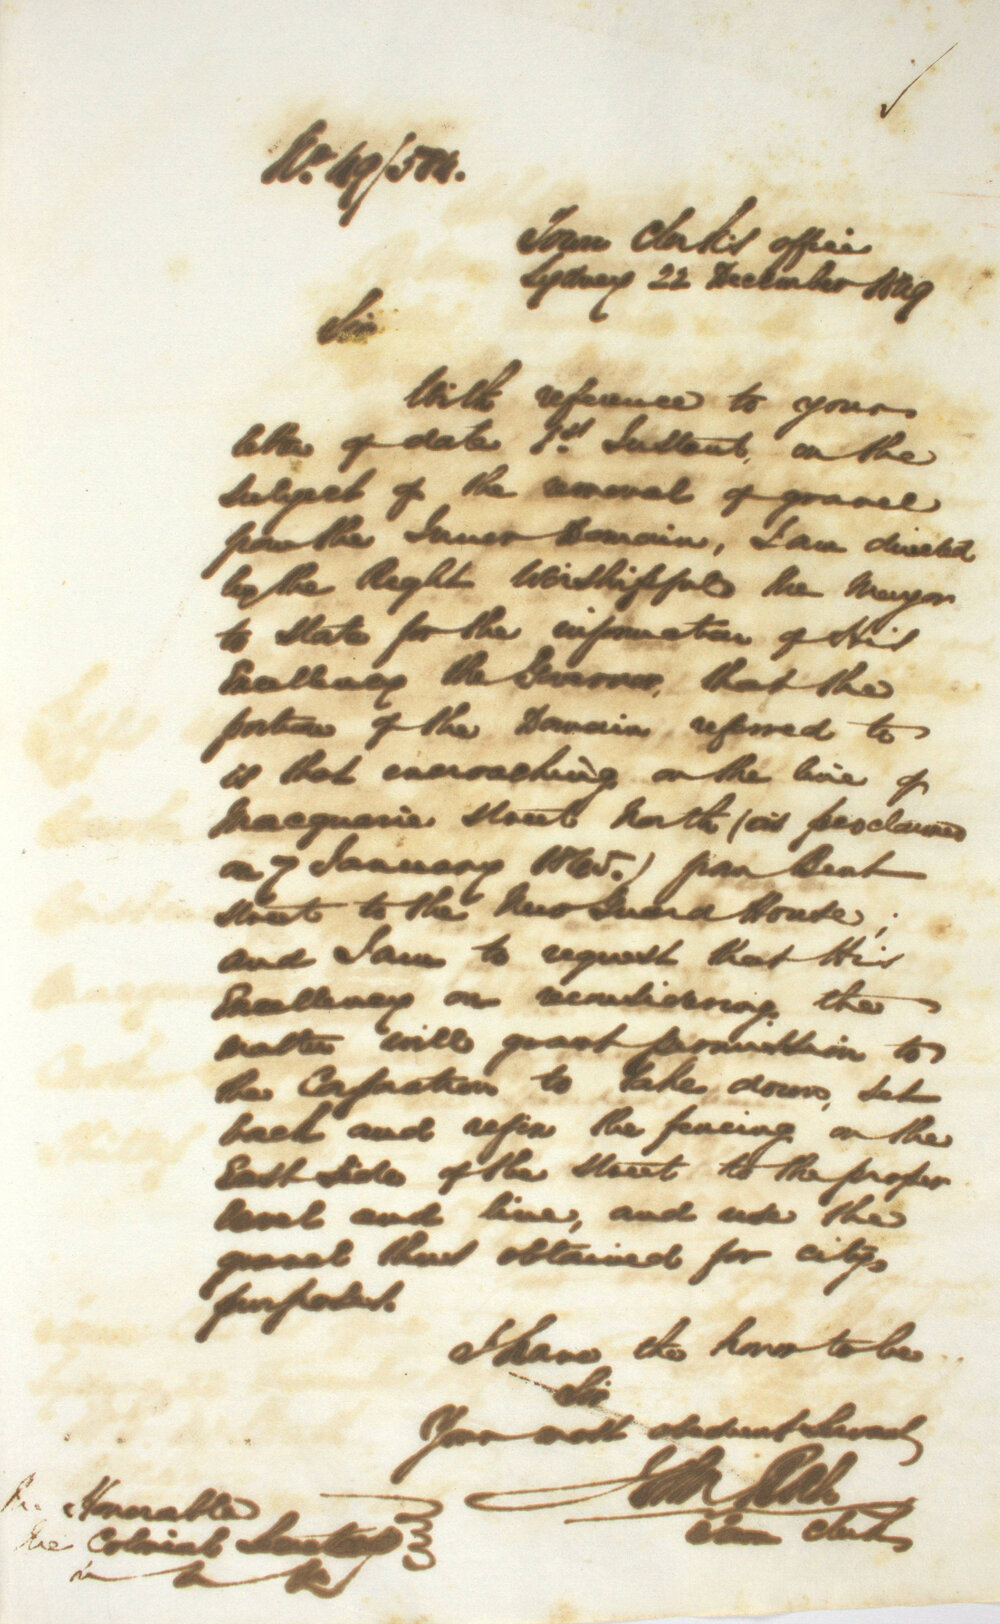 No. 49/504.
Town Clerk's office
Sydney 22 December 1849
Sir
With reference to your
letter of date 1st Instant, on the
subject of the removal of gravel
from the Inner Domain, I am directed
by the Right Worshipful the Mayor
to state for the information of His
Excellency the Governor, that the
portion of the Domain referred to
is that encroaching on the line of
Macquarie street North (as proclaimed
on 7 January) from Bent
street to the New Guard House;
and I am to request that His
Excellency on reconsidering the
matter will grant permission to
the Corporation to take down, set
back and refix the fencing on the
East side of the street to the proper
level and line, and use the
gravel thus obtained for city
purposes.
I have the honor to be
Sir
Your most obedient Servant
John Rule
Town Clerk
The Honorable
the Colonial Secretary